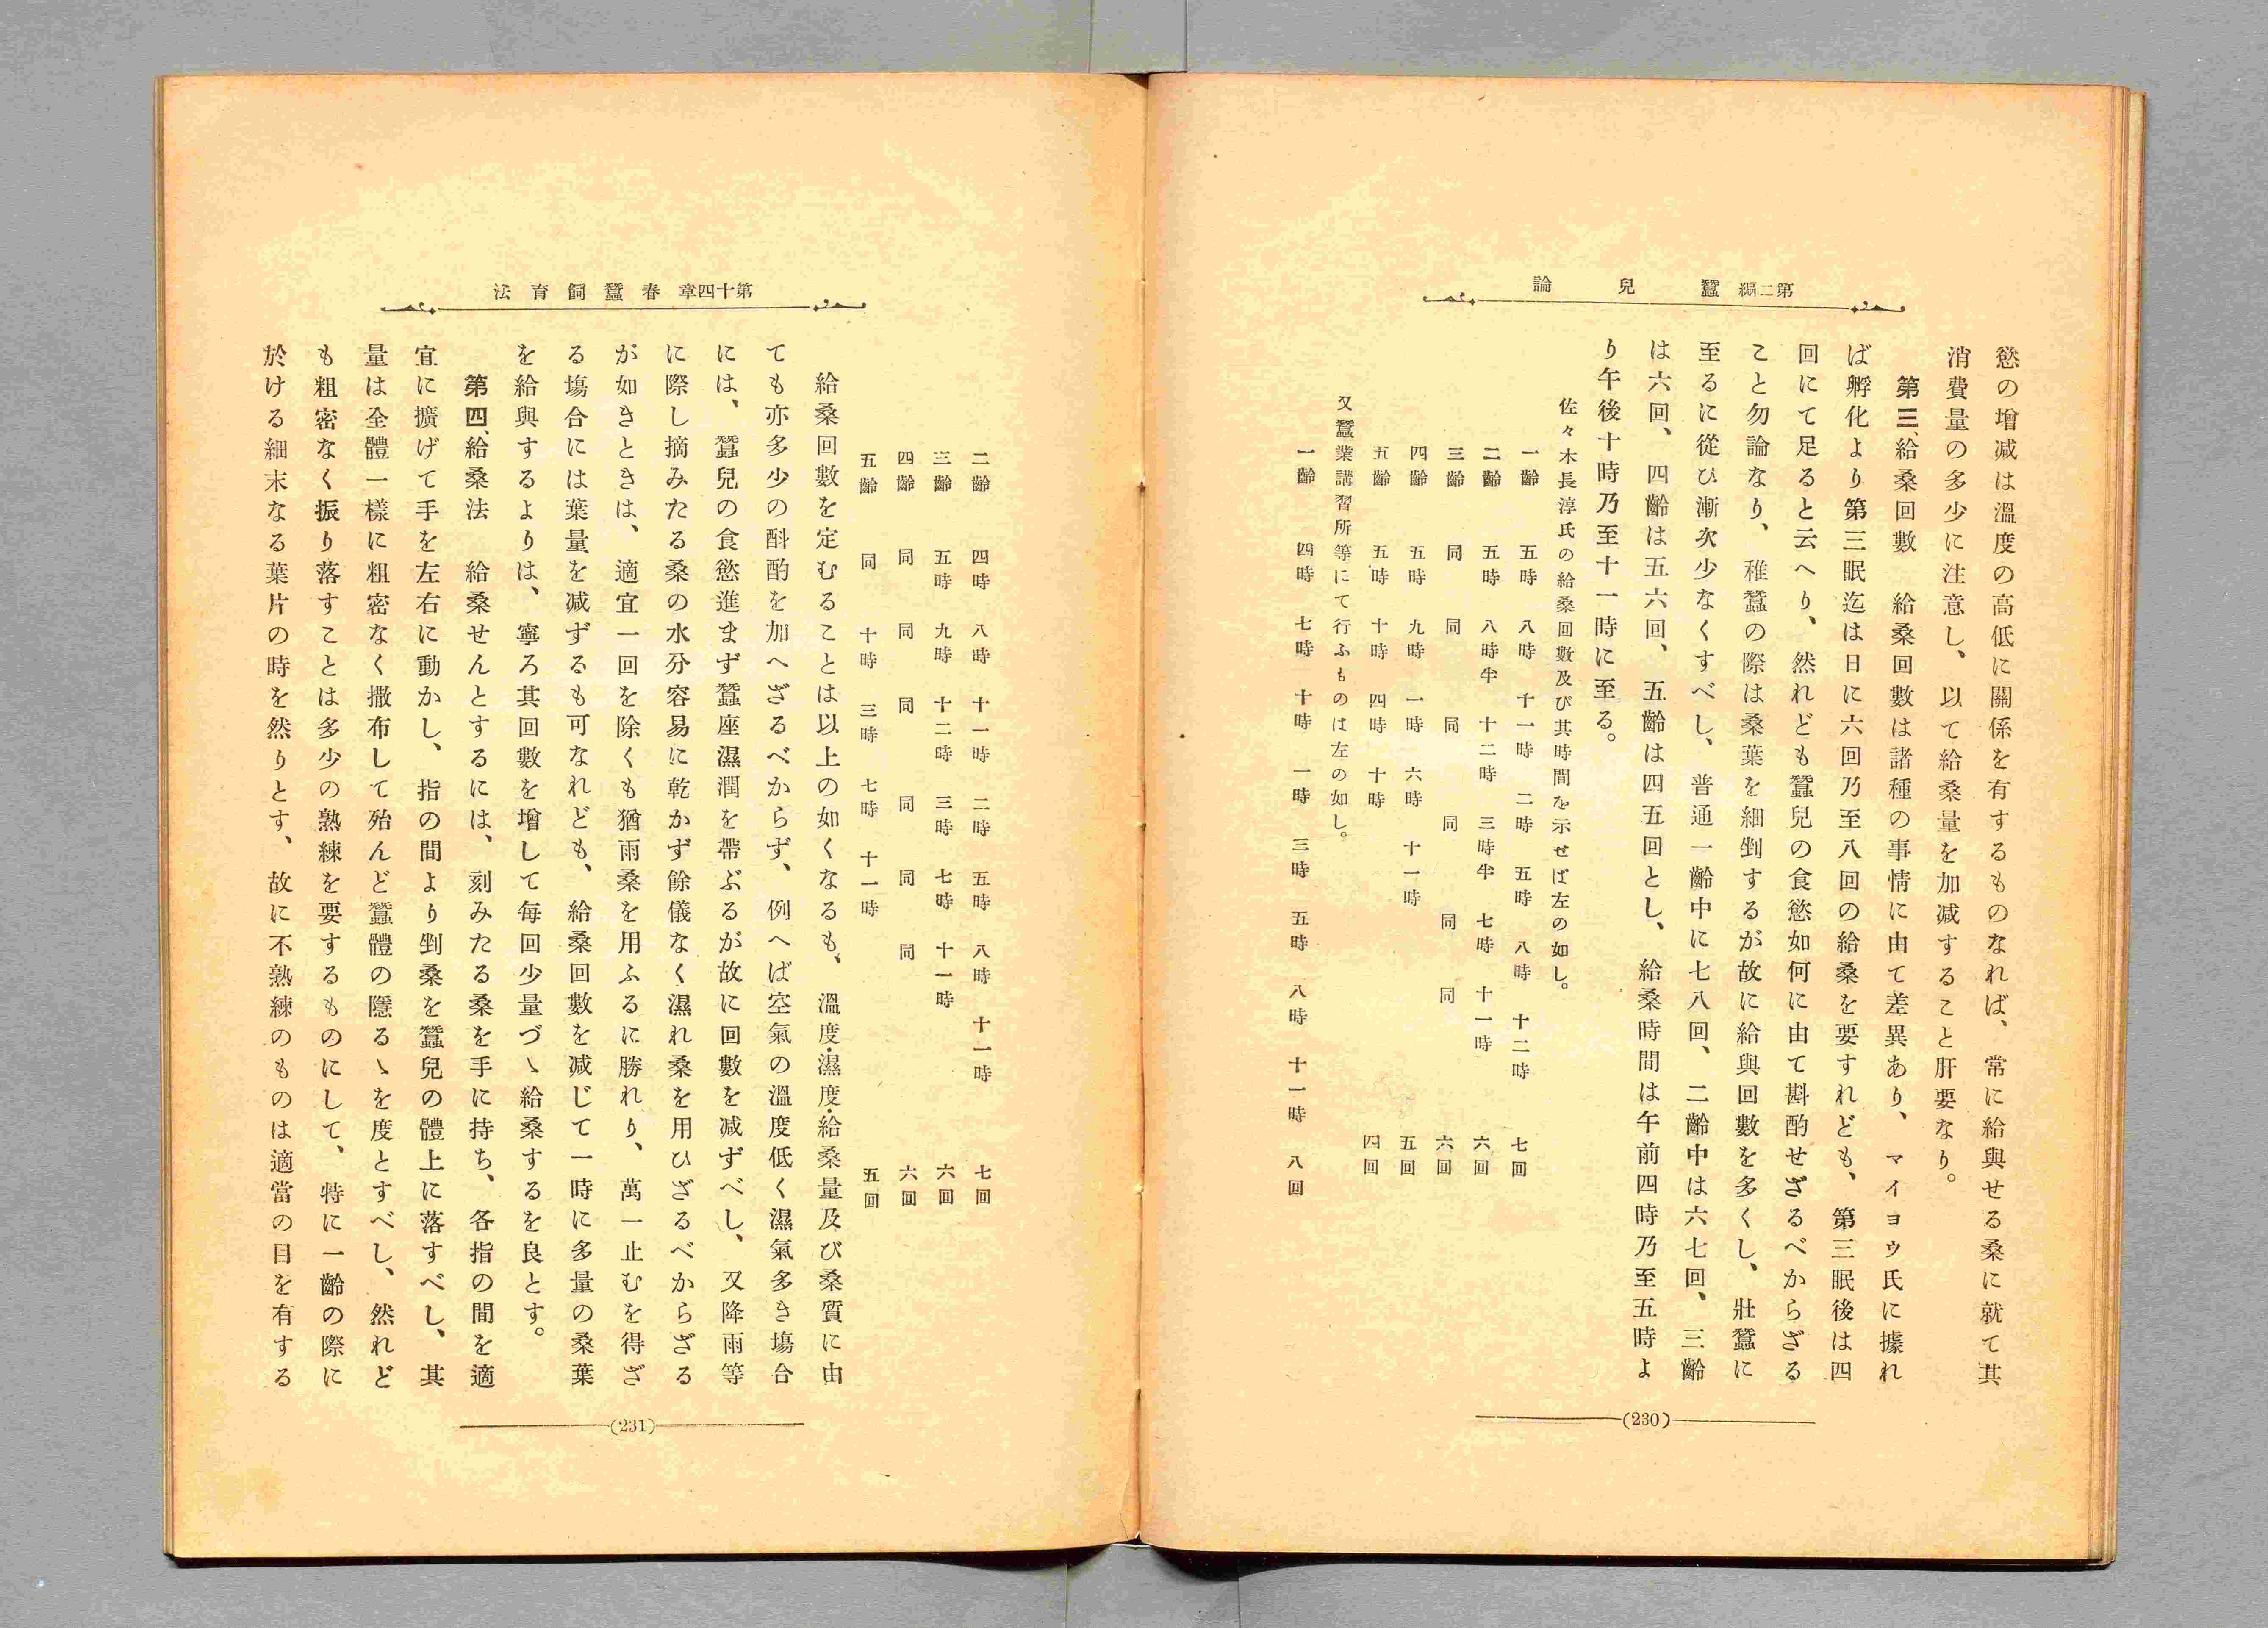 第二編 蠶兒論
慾の増減は溫度の高低に關係を有するものなれば、常に給與せる桑に就て其
消費量の多少に注意し、以て給桑量を加減すること肝要なり。
第三、給桑回數 給桑回數は諸種の事情に由て差異あり、マイヨウ氏に據れ
ば孵化より第三眠迄は日に六回乃至八回の給桑を要すれども、第三眠後は四
回にて足ると云へり、然れども蠶兒の食慾如何に由て斟酌せざるべからざる
こと勿論なり、稚蠶の際は桑葉を細剉するが故に給與回數を多くし、壯蠶に
至るに從ひ漸次少なくすべし、普通一齡中に七八回、二齡中は六七回、三齡
は六回、四齡は五六回、五齡は四五回とし、給桑時間は午前四時乃至五時よ
り午後十時乃至十一時に至る。
佐々木長淳氏の給桑回數及び其時間を示せば左の如し。
一齡 五時 八時 十一時 二時 五時 八時 十二時 七回
二齡 五時 八時半 十二時 三時半 七時 十一時 六回
三齡 同 同 同 同 同 同 六回
四齡 五時 九時 一時 六時 十一時 五回
五齡 五時 十時 四時 十時 四回
又蠶業講習所等にて行ふものは左の如し。
一齡 四時 七時 十時 一時 三時 五時 八時 十一時 八回
(230)
第十四章 春蠶飼育法
二齡 四時 八時 十一時 二時 五時 八時 十一時 七回
三齡 五時 九時 十二時 三時 七時 十一時 六回
四齡 同 同 同 同 同 同 六回
五齡 同 十時 三時 七時 十一時 五回
給桑回數を定むることは以上の如くなるも、溫度・濕度・給桑量及び桑質に由
ても亦多少の酙酌を加へざるべからず、例へば空氣の溫度低く濕氣多き塲合
には、蠶兒の食慾進まず蠶座濕潤を帶ぶるが故に回數を減ずべし、又降雨等
に際し摘みたる桑の水分容易に乾かず餘儀なく濕れ桑を用ひざるべからざる
が如きときは、適宜一回を除くも猶雨桑を用ふるに勝れり、萬一止むを得ざ
る塲合には葉量を減ずるも可なれども、給桑回數を減じて一時に多量の桑葉
を給與するよりは、寧ろ其回數を增して每回少量づゝ給桑するを良とす。
第四、給桑法 給桑せんとするには、刻みたる桑を手に持ち、各指の間を適
宜に擴げて手を左右に動かし、指の間より剉桑を蠶兒の體上に落すべし、其
量は全體一樣に粗密なく撒布して殆んど蠶體の隱るゝを度とすべし、然れど
も粗密なく振り落すことは多少の熟練を要するものにして、特に一齡の際に
於ける細末なる葉片の時を然りとす、故に不熟練のものは適當の目を有する
(231)